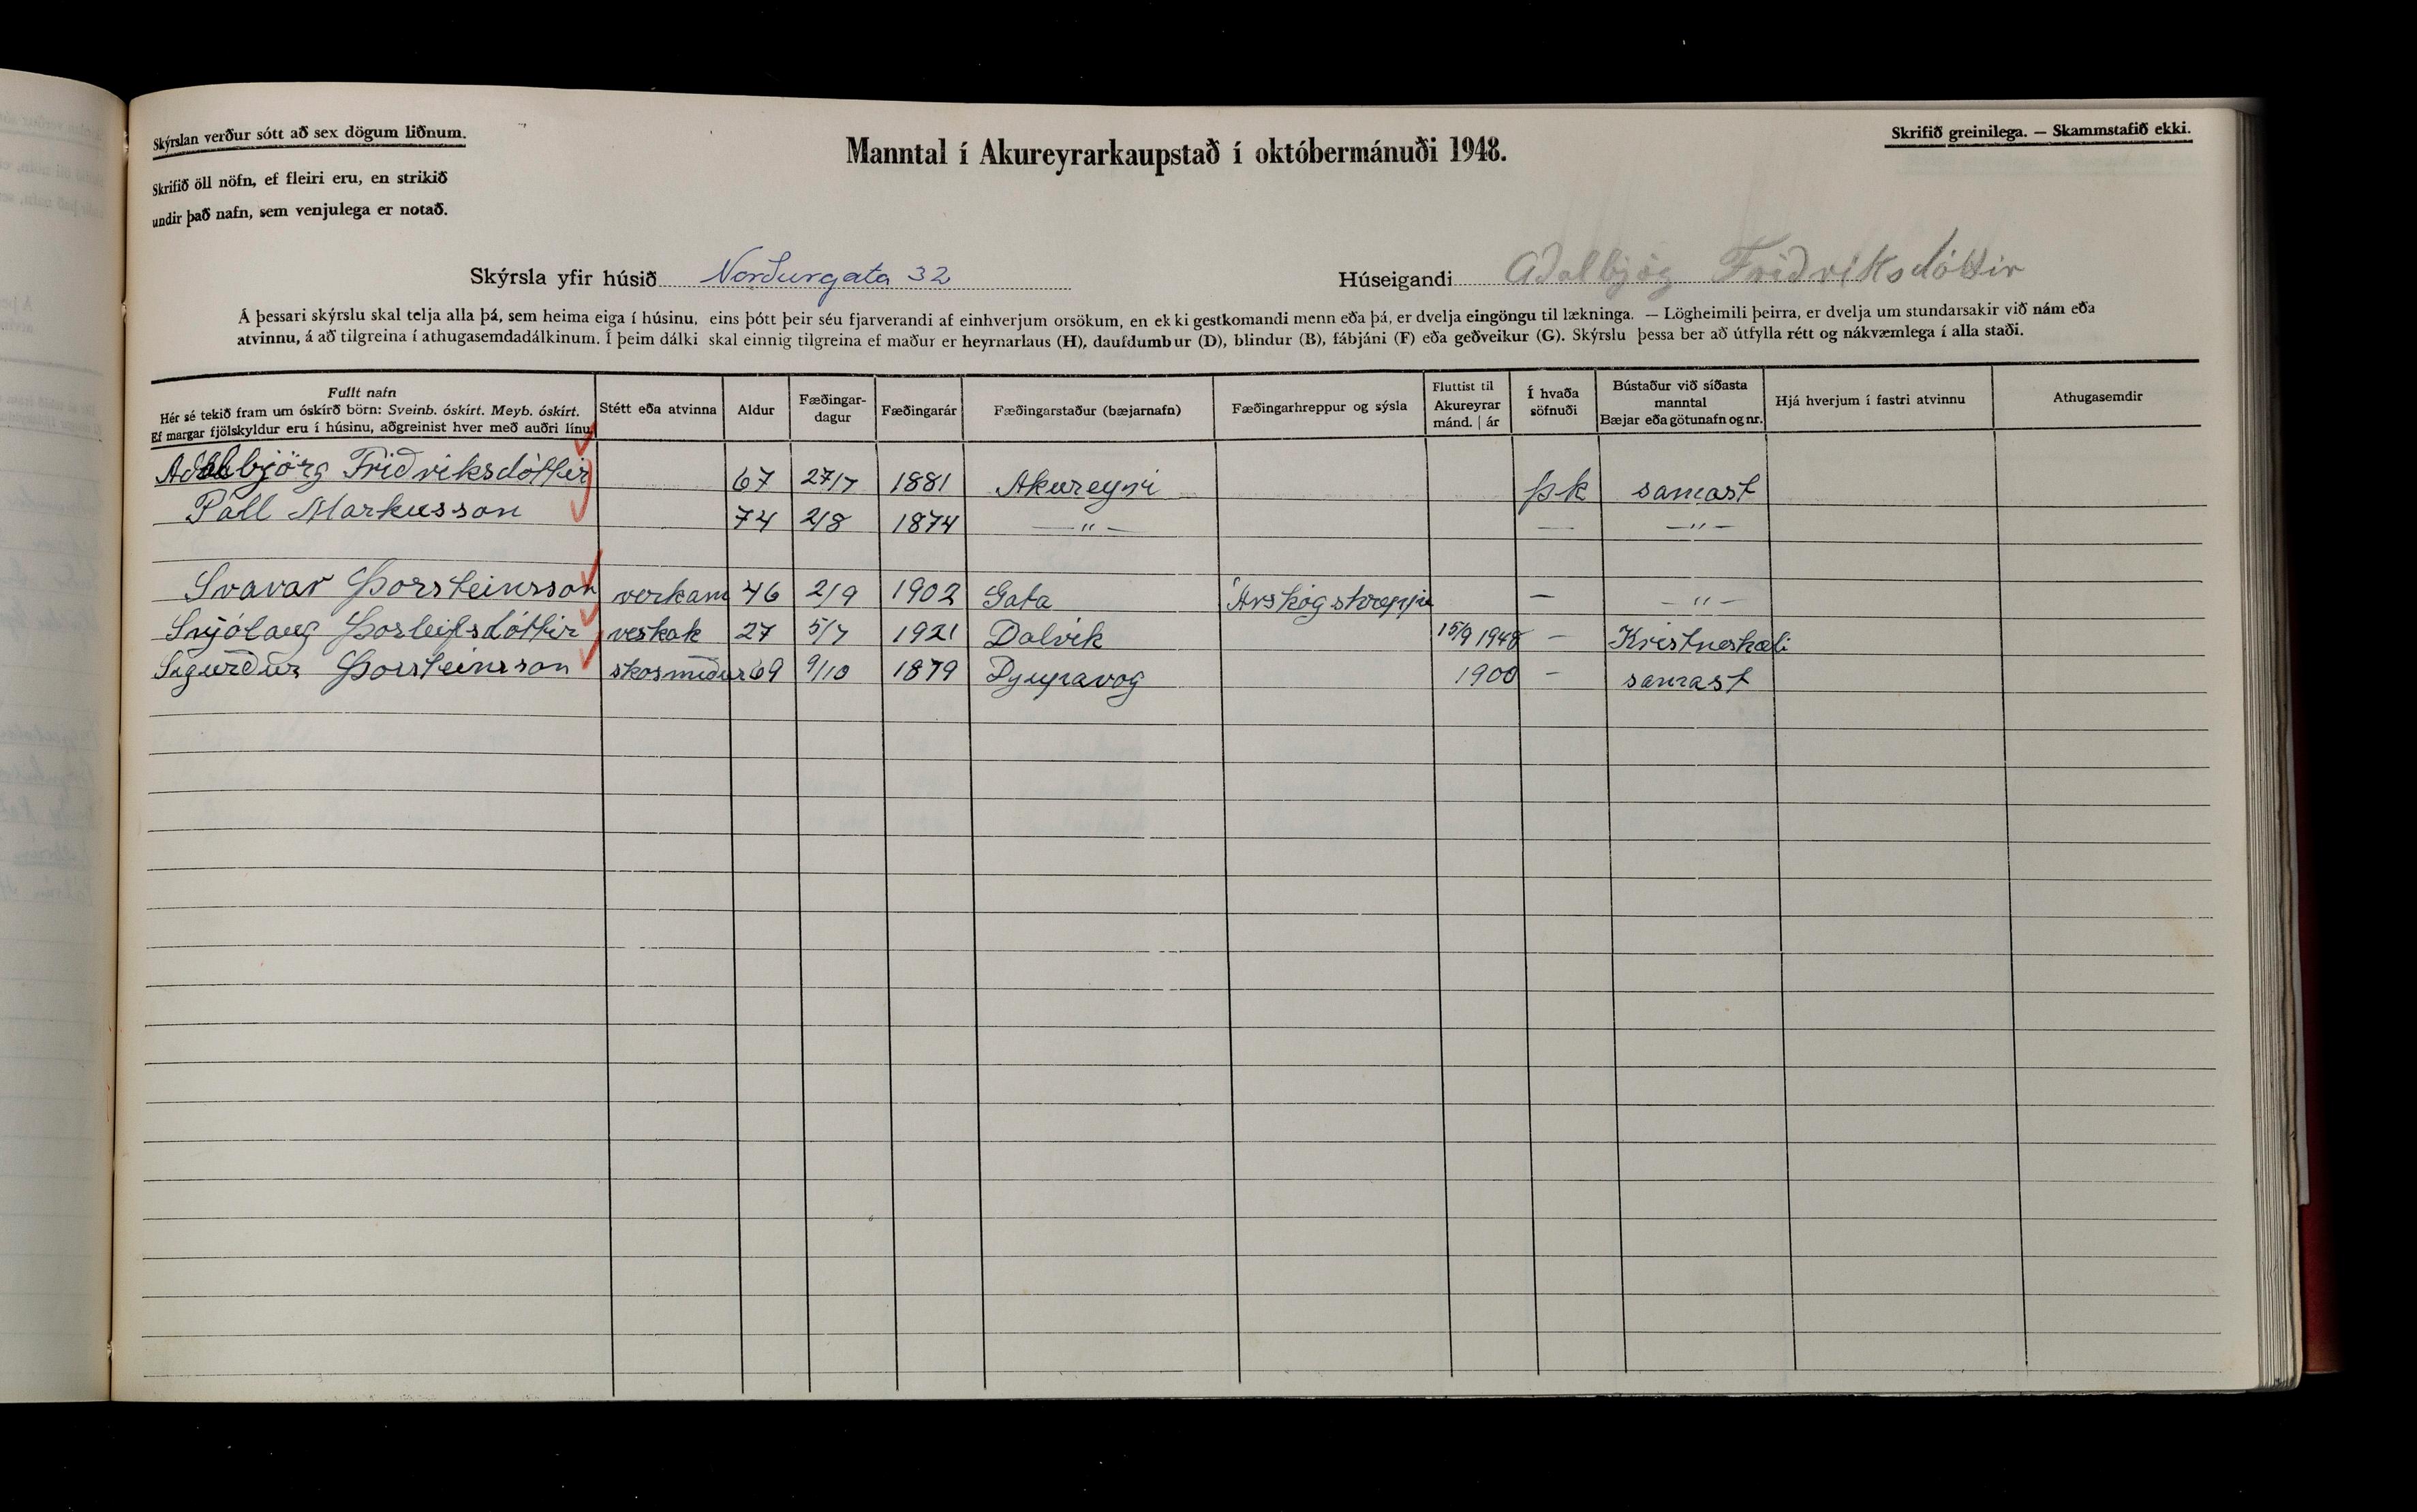 Skýrslan verður sótt að sex dögum liðnum.
Skrifið öll nöfn, ef fleiri eru, en strikið
undir það nafn, sem venjulega er notað.
Manntal í Akureyrarkaupstað í októbermánuði 1948.
Skrifið greinilega. — Skammstafið ekki.
Skýrsla yfir húsið Norðurgata 32
Húseigandi Aðalbjög Friðriksdóttir
Á þessari skýrslu skal telja alla þá, sem heima eiga í húsinu, eins þótt þeir séu fjarverandi af einhverjum orsökum, en ekki gestkomandi menn eða þá, er dvelja eingöngu til lækninga. — Lögheimili þeirra, er dvelja um stundarsakir við nám eða
atvinnu, á að tilgreina í athugasemdadálkinum. Í þeim dálki skal einnig tilgreina ef maður er heyrnarlaus (H), daufdumbur (D), blindur (B), fábjáni (F) eða geðveikur (G). Skýrslu þessa ber að útfylla rétt og nákvæmlega í alla staði.
Fullt nafn
Hér sé tekið fram um óskírð börn: Sveinb. óskírt. Meyb. óskírt.
Ef margar fjölskyldur eru í húsinu, aðgreinist hver með auðri línu.
Stétt eða atvinna
Aldur
Fæðingar-
dagur
Fæðingarár
Fæðingarstaður (bæjarnafn)
Fæðingarhreppur og sýsla
Fluttist til
Akureyrar
mánd. | ár
Í hvaða
söfnuði
Bústaður við síðasta
manntal
Bæjar eða götunafn og nr.
Hjá hverjum í fastri atvinnu
Athugasemdir
Aðalbjörg Friðriksdóttir 67 27/7 1881 Akureyri þk samast
Páll Markusson 74 2/8 1874 —"— — —"—
Svavar Þorsteinsson verkam 46 2/9 1902 Gata Árskógshreppi — —"—
Snjólaug Þorleifsdóttir veskak 27 5/7 1921 Dalvik 15/9 1948 — Kristneshæli
Sigurður Þorsteinsson skosmiður 69 9/10 1879 Djupavog 1900 — samast